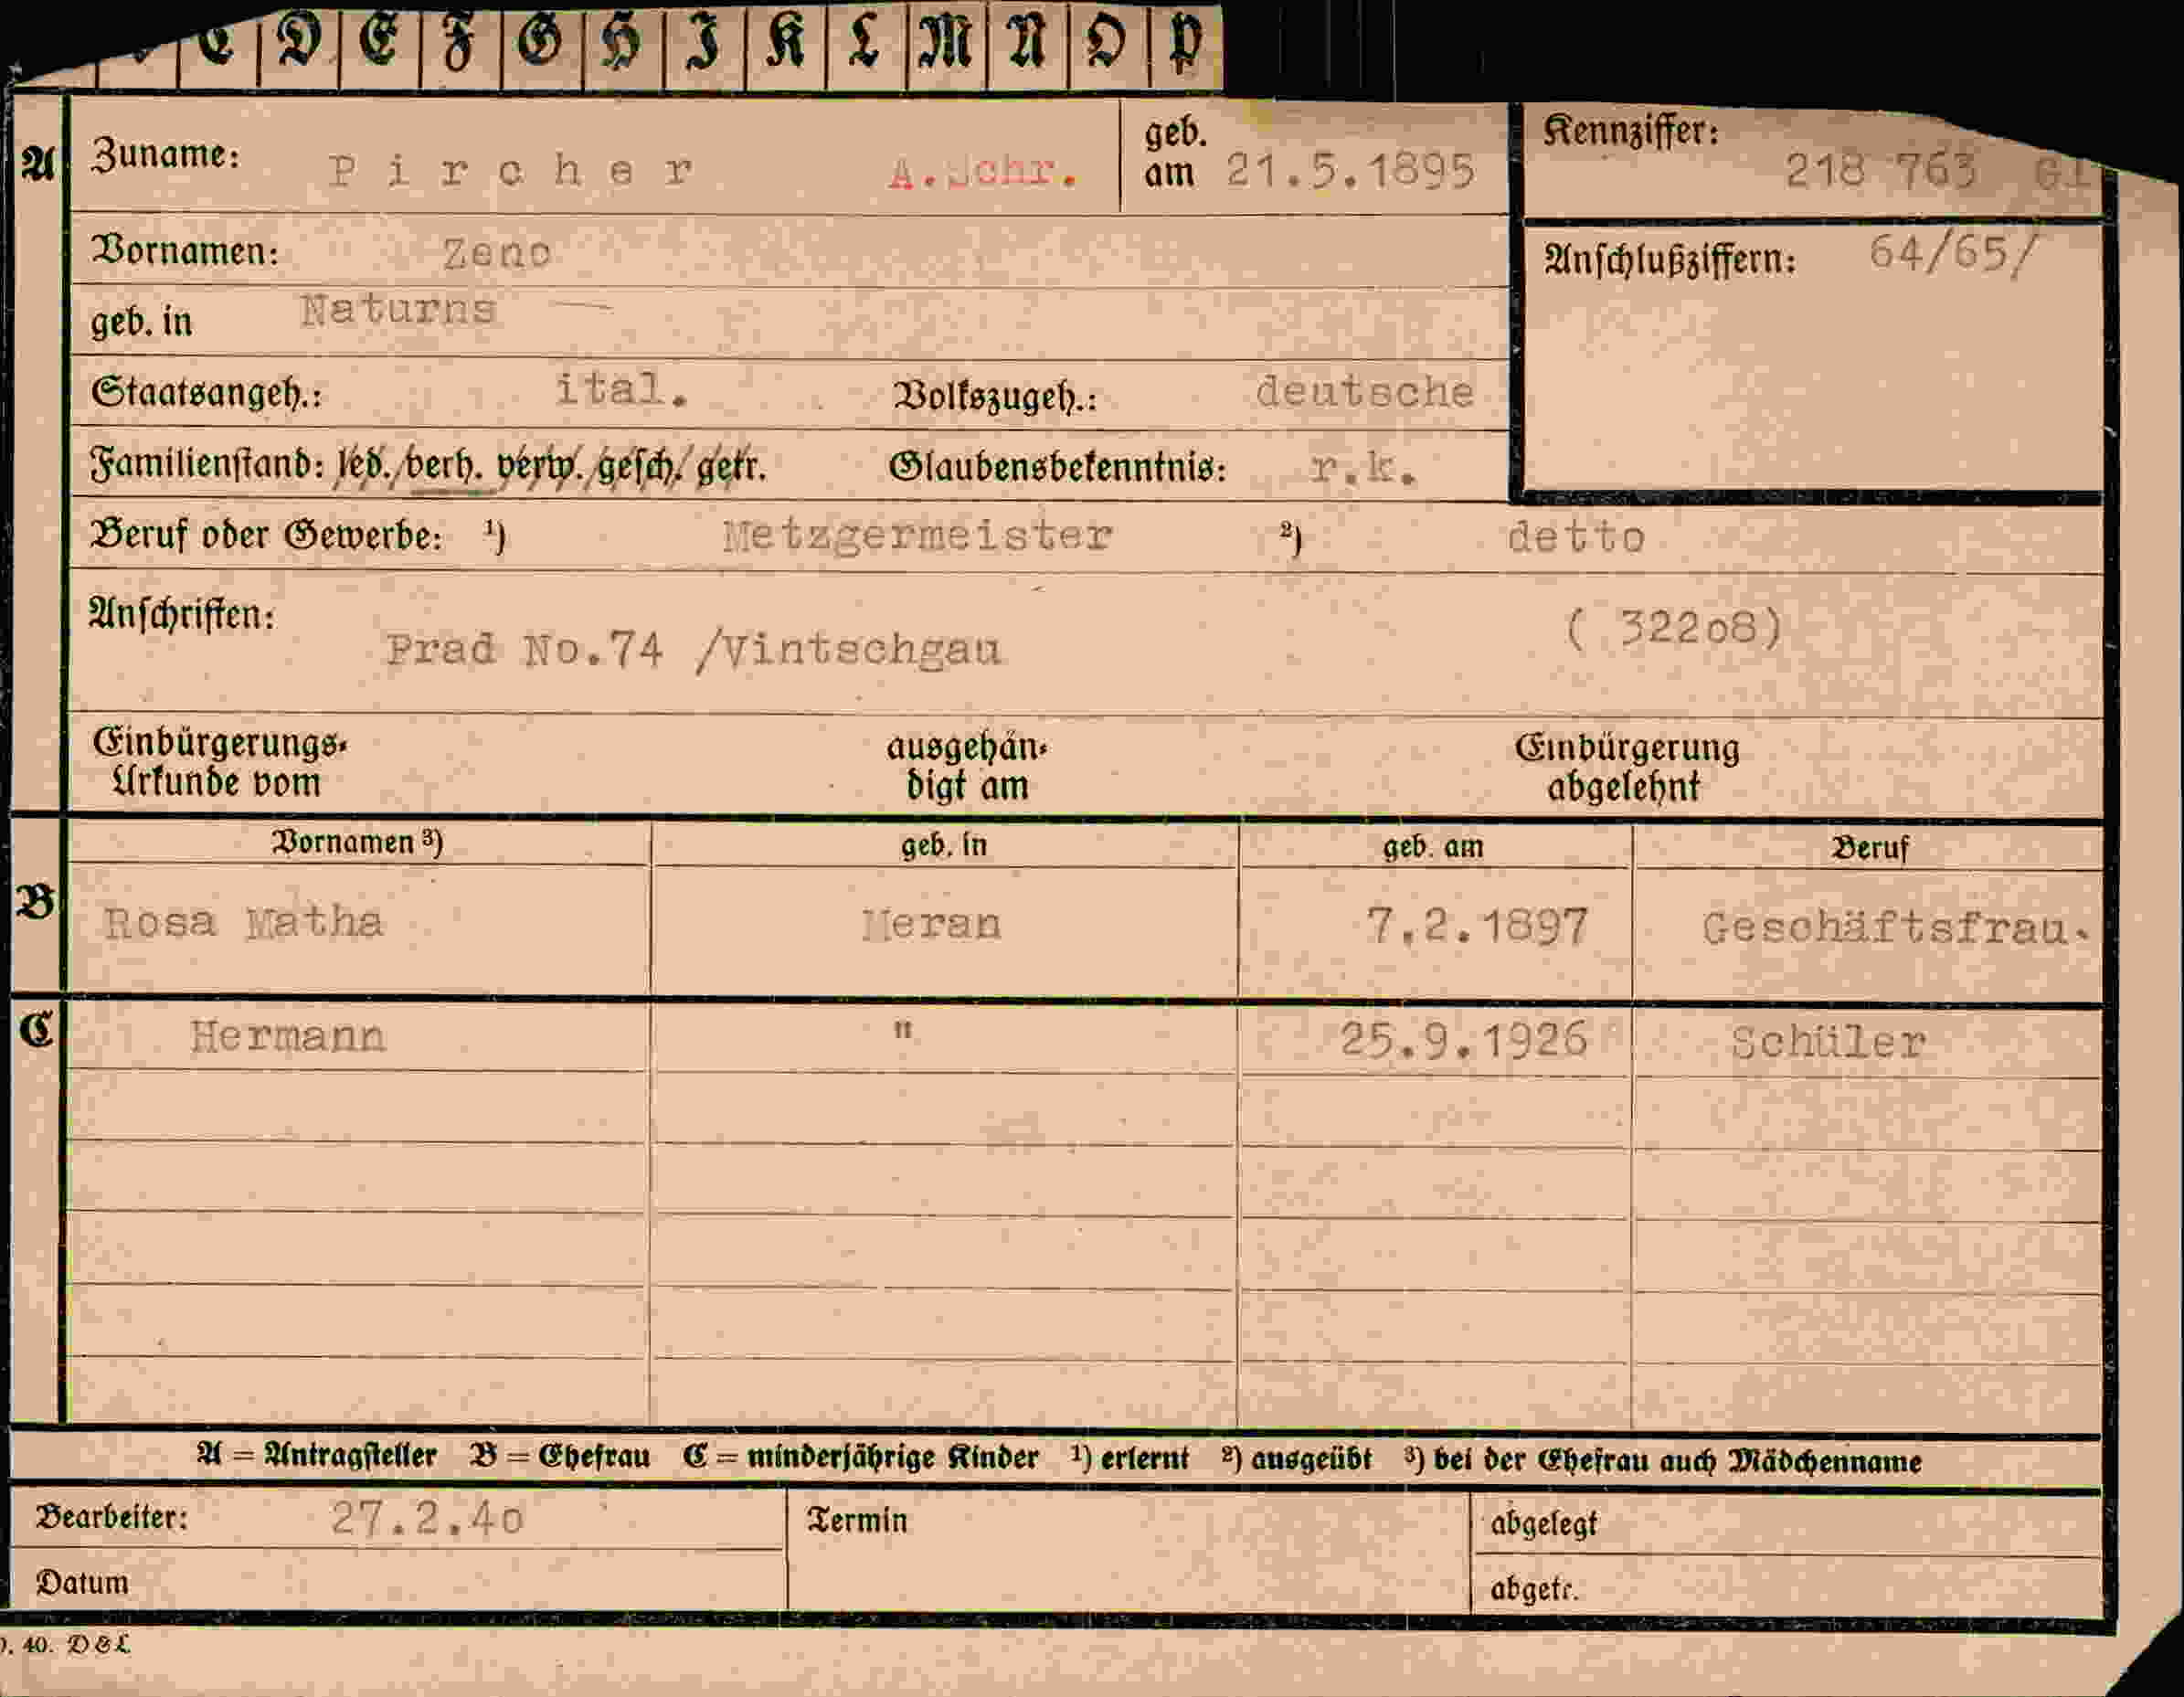 C D E F G H I K L M N O P
A Zuname: Pircher A.Schr. geb. am 21.5.1895 Kennziffer: 218 763
Vornamen: Zeno Anschlußziffern: 64/65/
geb. in Naturns —
Staatsangeh.: ital. Volkszugeh.: deutsche
Familienstand: led./verh. verw./gesch./getr. Glaubensbekenntnis: r.k.
Beruf oder Gewerbe: 1) Metzgermeister 2) detto
Anschriften: Prad No.74 /Vintschgau ( 322o8)
Einbürgerungs- ausgehän- Einbürgerung
Urkunde vom digt am abgelehnt
Vornamen 3) geb. in geb. am Beruf
B Rosa Matha Meran 7.2.1897 Geschäftsfrau.
C Hermann " 25.9.1926 Schüler
A = Antragsteller B = Ehefrau C = minderjährige Kinder 1) erlernt 2) ausgeübt 3) bei der Ehefrau auch Mädchenname
Bearbeiter: 27.2.4o Termin abgelegt
Datum abgetr.
40. D&L